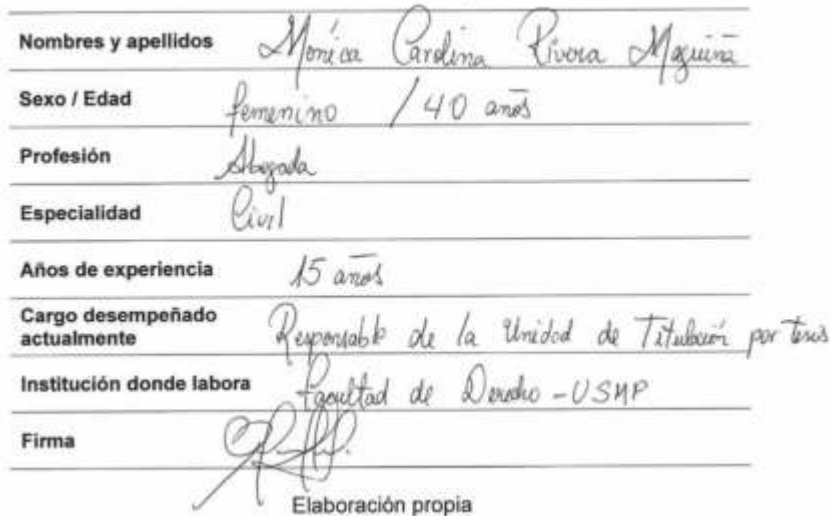 Nombres y apellidos Mónica Carolina Rivera Maguiña
Sexo / Edad femenino / 40 años
Profesión Abogada
Especialidad Civil
Años de experiencia 15 años
Cargo desempeñado
actualmente Responsable de la Unidad de Titulación por tesis
Institución donde labora Facultad de Derecho - USMP
Firma
Elaboración propia